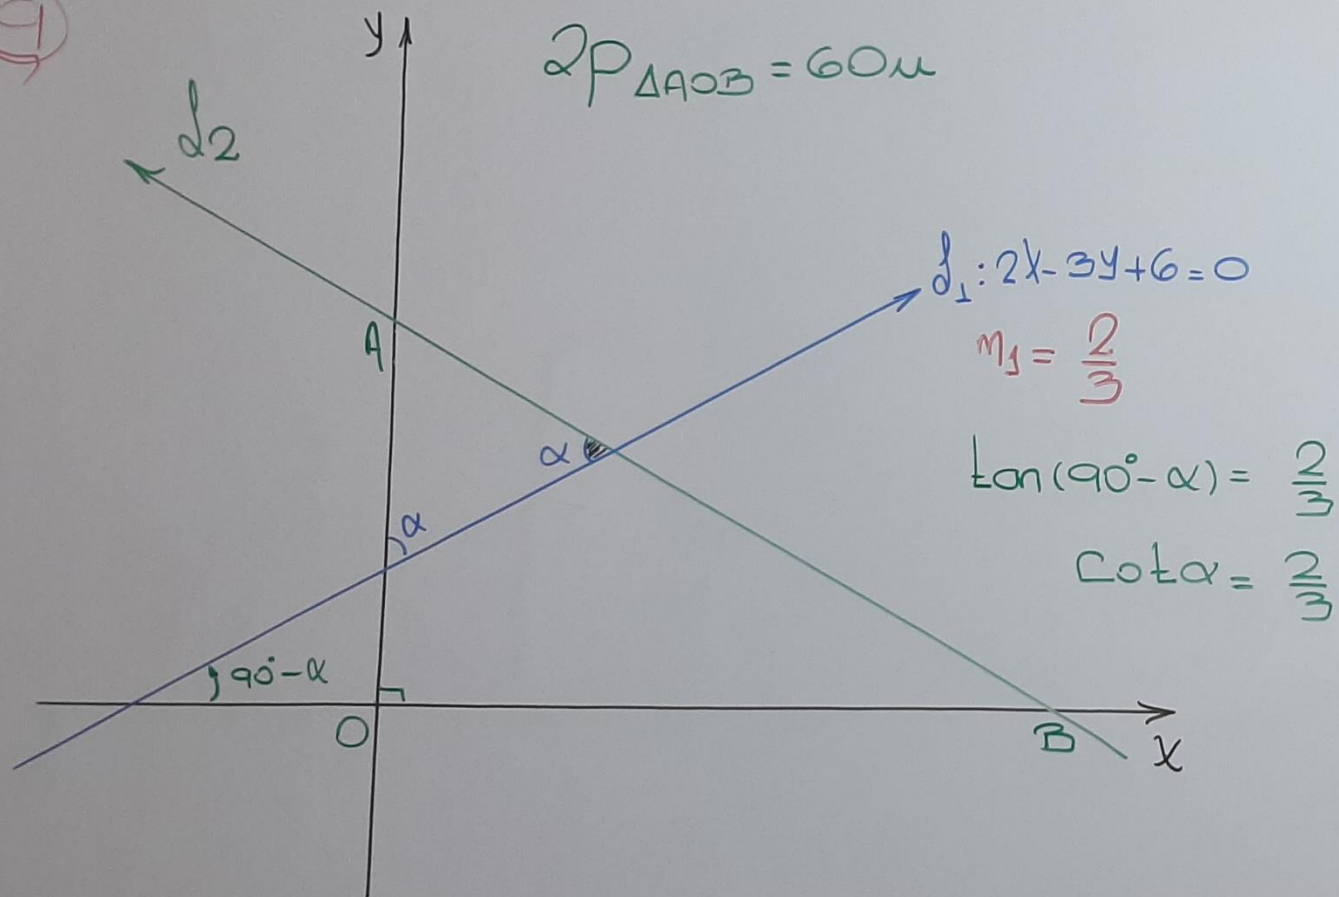 9)
y
2P△AOB = 60u
L2
L1: 2x - 3y + 6 = 0
A
m1 = 2/3
α
tan(90° - α) = 2/3
α
cot α = 2/3
90° - α
O
B
x